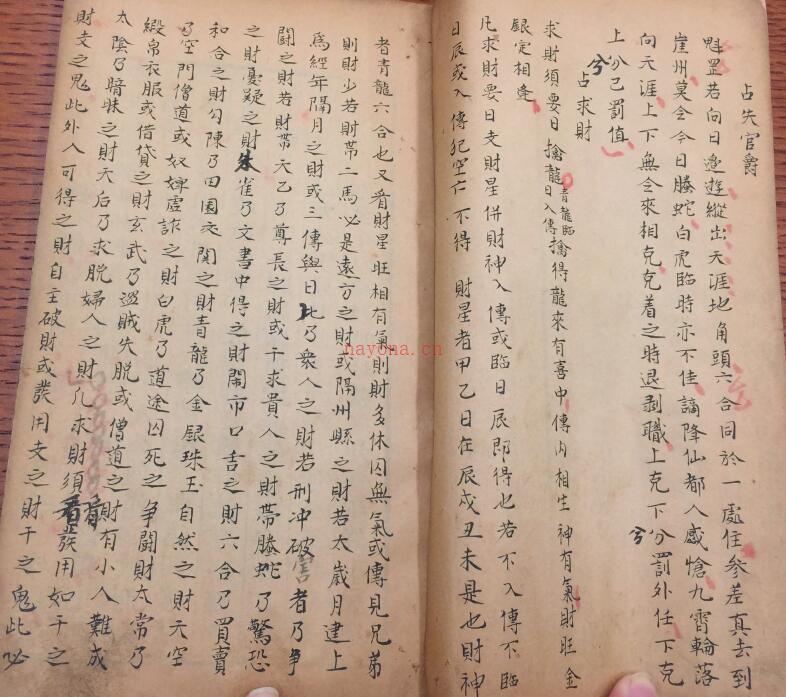 占失官爵
魁罡若向日邊遊縱出天涯地角頭六合同於一處住參差真去到
崖州莫令今日螣蛇白虎臨時亦不佳謫降仙都人感愴九霄輪落
向天涯上下無令來相克克着之時退剥職上克下兮罰外任下克
上兮己罰值
占求財
求財須要日擒龍青龍臨日入傳擒得龍來有喜中傳內相生神有氣財旺金
銀定相逢
凡求財要日支財星併財神入傳或臨日辰即得也若不入傳不臨
日辰或入傳犯空亡不得 財星者甲乙日在辰戌丑未是也財神
者青龍六合也又看財星旺相有氣則財多休囚無氣或傳見兄弟
則財少若財帶二馬必是遠方之財或隔州縣之財若太歲月建上
爲經年隔月之財或三傳與日比乃衆人之財若刑冲破害者乃争
鬪之財若財帶天乙乃尊長之財或干求貴人之財帶螣蛇乃驚恐
之財憂疑之財朱雀乃文書中得之財鬧市口舌之財六合乃買賣
和合之財勾陳乃田園交関之財青龍乃金銀珠玉自然之財天空
乃空門僧道或奴婢虛詐之財白虎乃道途囚死之争鬪財太常乃
緞帛衣服或借貸之財玄武乃盜賊失脫或僧道之財有小人難成
太陰乃暗昧之財天后乃求脱婦人之財凡求財須看發用如干之
財支之鬼此外人可得之財自主破財或發用支之財干之鬼此必
nayona.cn